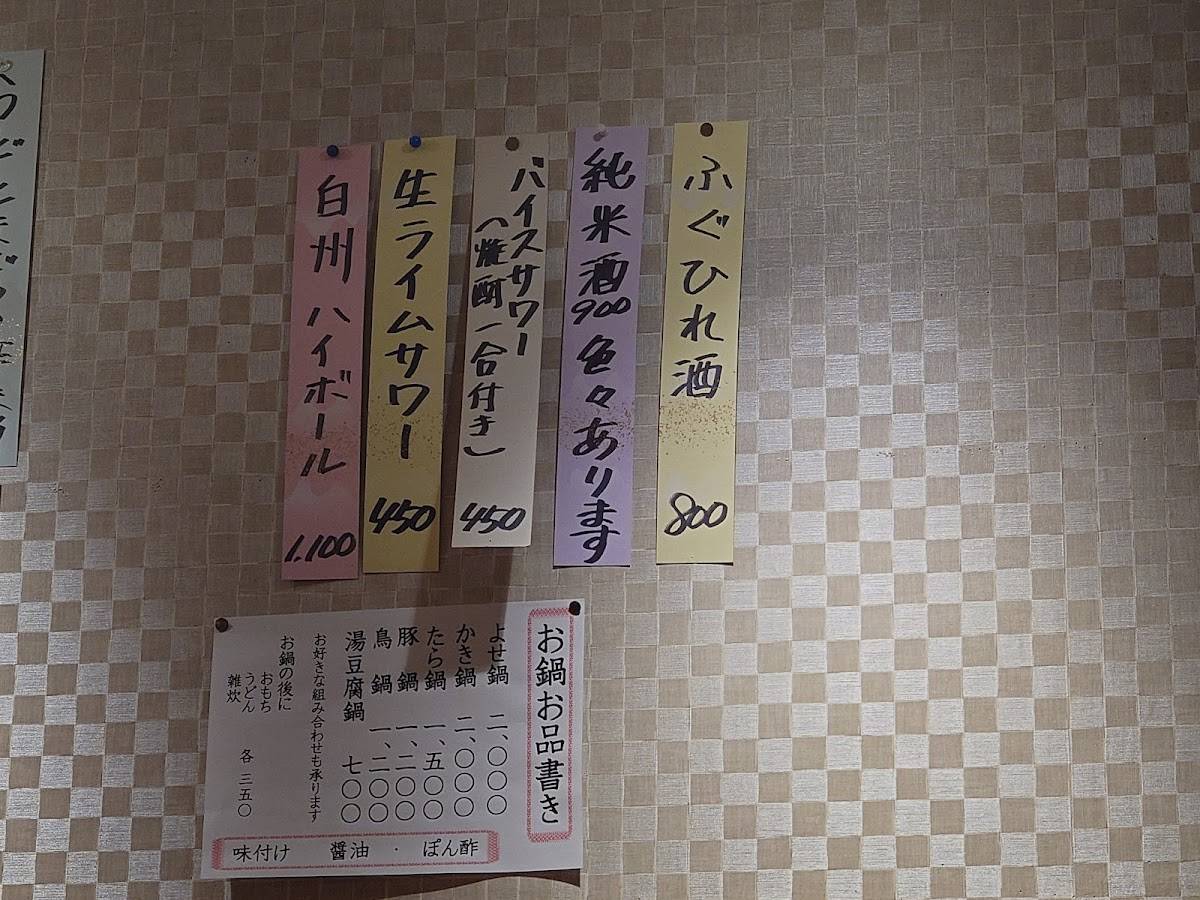 ふぐひれ酒 800
純米酒 900 色々あります
バイスサワー
(焼酎一合付き) 450
生ライムサワー 450
白州ハイボール 1.100
お鍋お品書き
よせ鍋 二、〇〇〇
かき鍋 二、〇〇〇
たら鍋 一、五〇〇
豚鍋 一、二〇〇
鳥鍋 一、二〇〇
湯豆腐鍋 七〇〇
お好きな組み合わせも承ります
お鍋の後に
おもち
うどん
雑炊
各 三五〇
味付け 醤油・ぽん酢